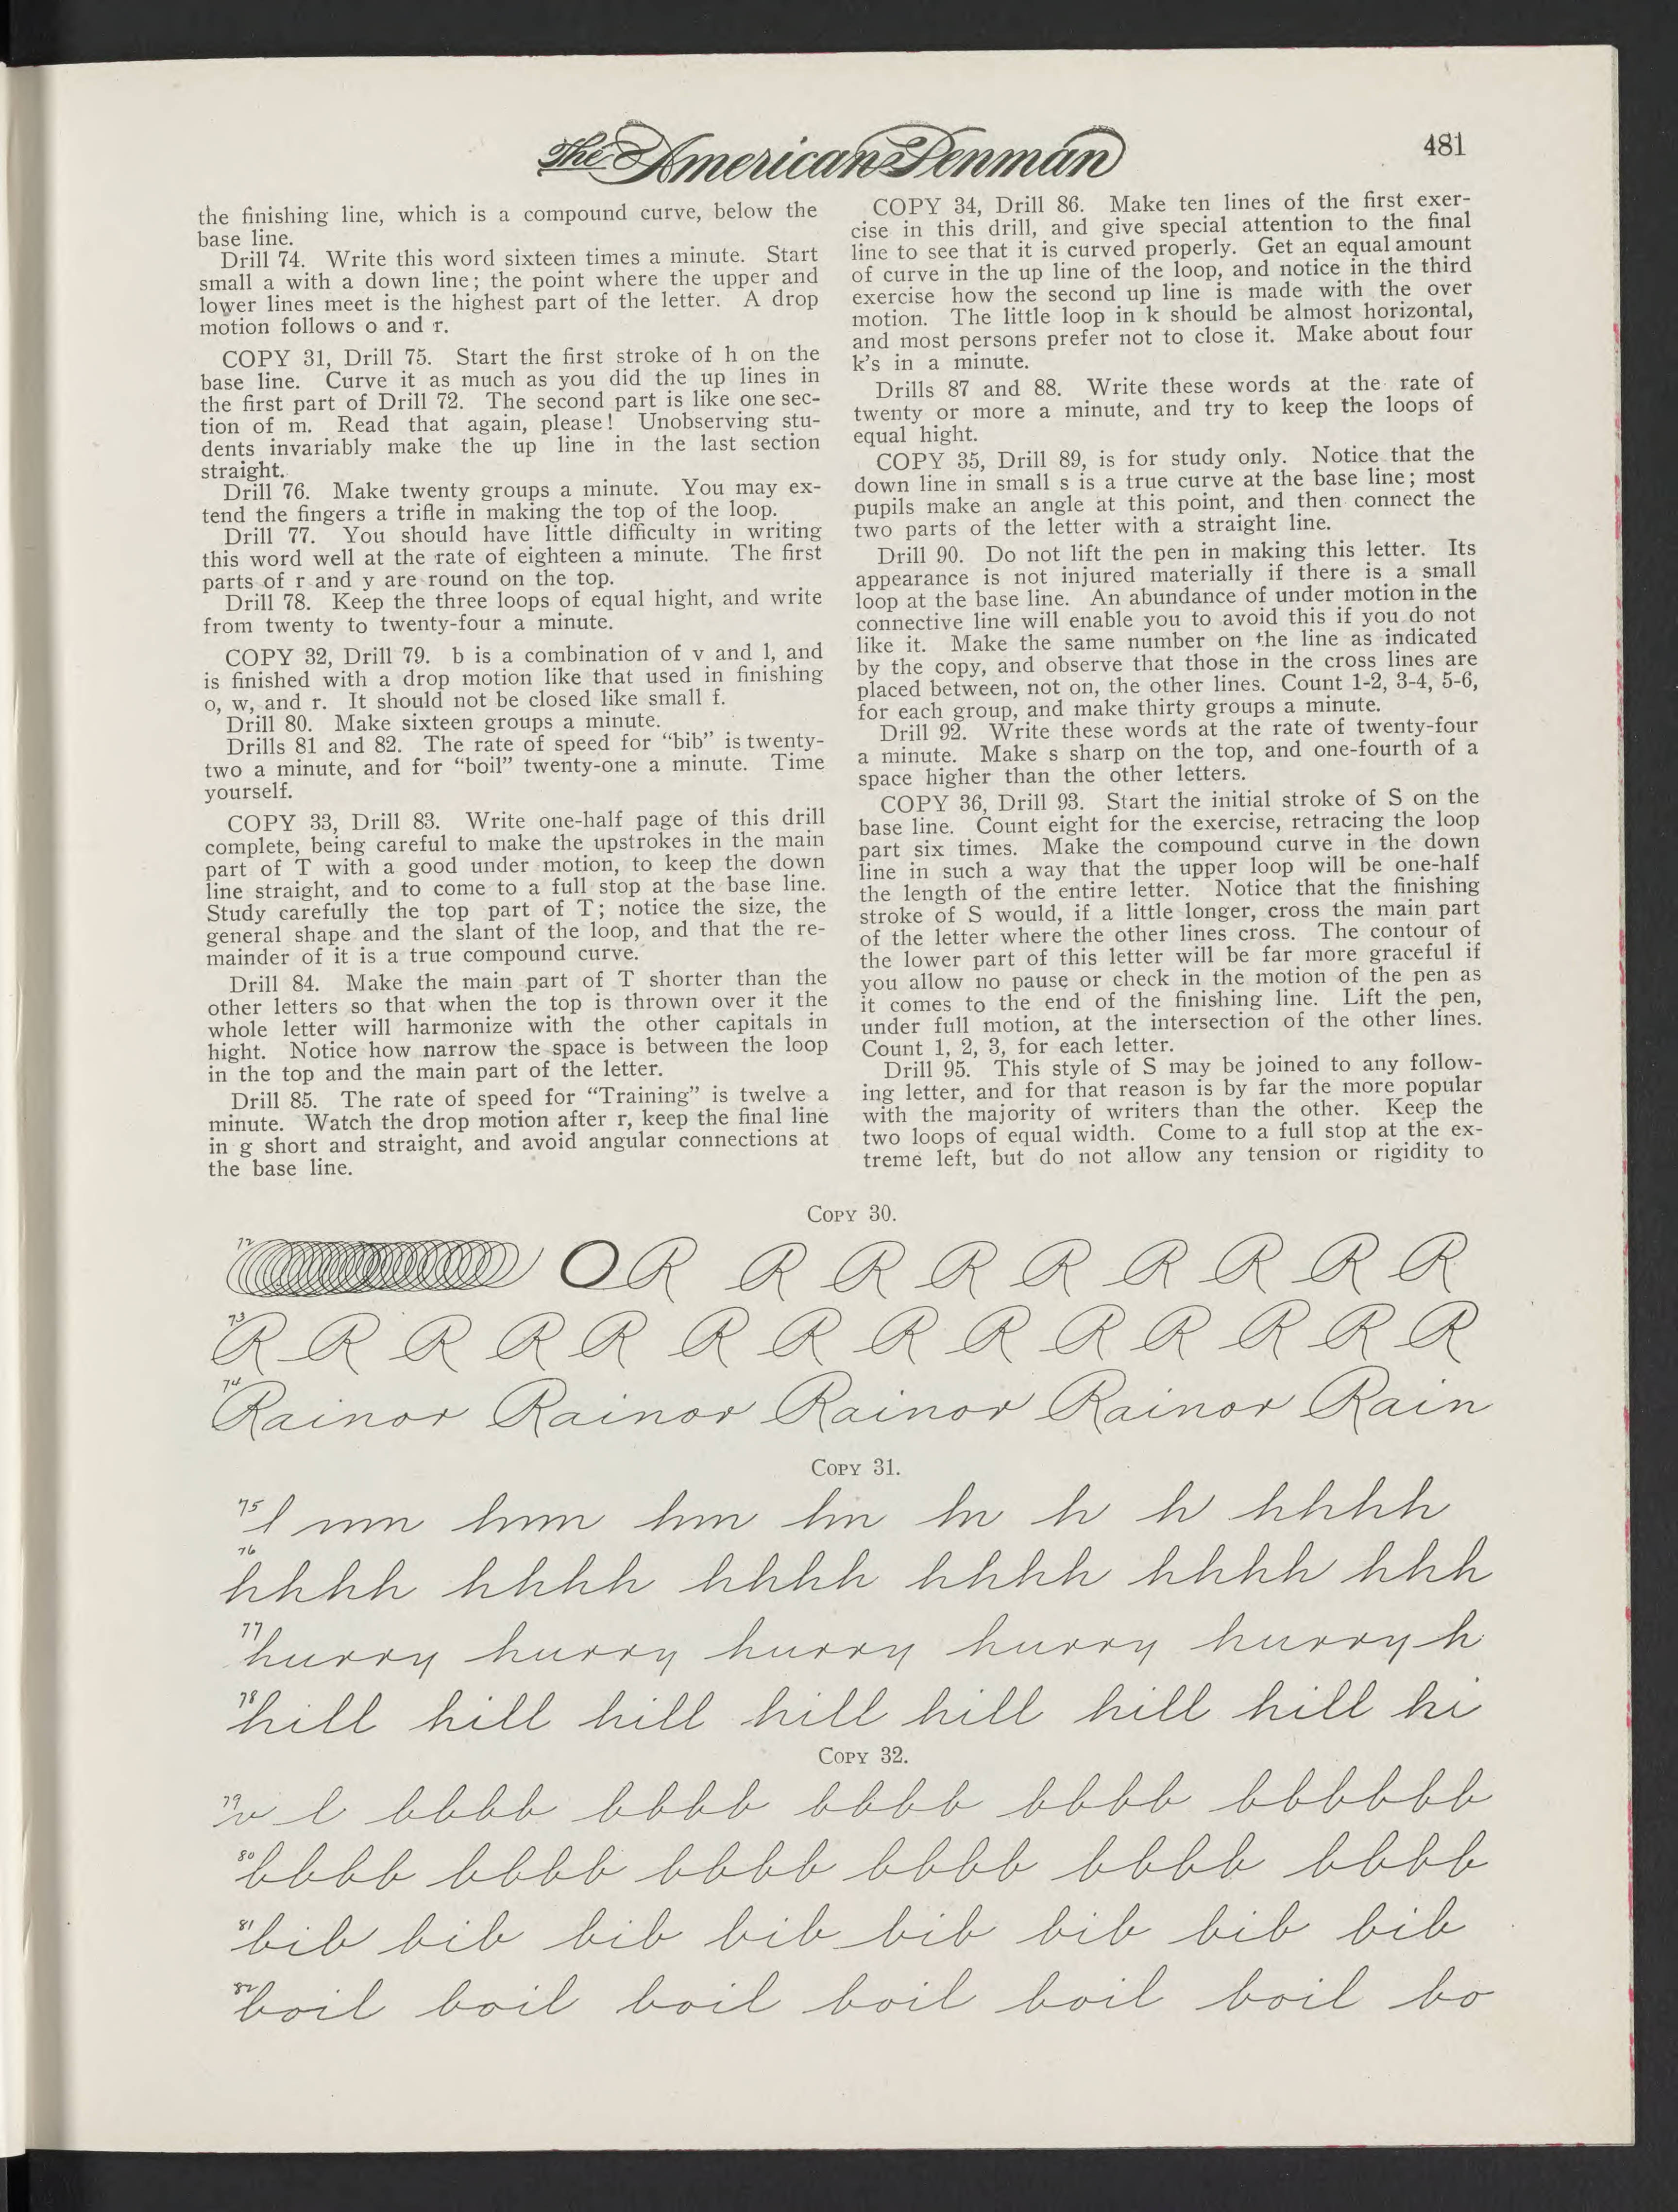 The American Penman
481
the finishing line, which is a compound curve, below the
base line.
Drill 74. Write this word sixteen times a minute. Start
small a with a down line; the point where the upper and
lower lines meet is the highest part of the letter. A drop
motion follows o and r.
COPY 31, Drill 75. Start the first stroke of h on the
base line. Curve it as much as you did the up lines in
the first part of Drill 72. The second part is like one sec-
tion of m. Read that again, please! Unobserving stu-
dents invariably make the up line in the last section
straight.
Drill 76. Make twenty groups a minute. You may ex-
tend the fingers a trifle in making the top of the loop.
Drill 77. You should have little difficulty in writing
this word well at the rate of eighteen a minute. The first
parts of r and y are round on the top.
Drill 78. Keep the three loops of equal hight, and write
from twenty to twenty-four a minute.
COPY 32, Drill 79. b is a combination of v and l, and
is finished with a drop motion like that used in finishing
o, w, and r. It should not be closed like small f.
Drill 80. Make sixteen groups a minute.
Drills 81 and 82. The rate of speed for "bib" is twenty-
two a minute, and for "boil" twenty-one a minute. Time
yourself.
COPY 33, Drill 83. Write one-half page of this drill
complete, being careful to make the upstrokes in the main
part of T with a good under motion, to keep the down
line straight, and to come to a full stop at the base line.
Study carefully the top part of T; notice the size, the
general shape and the slant of the loop, and that the re-
mainder of it is a true compound curve.
Drill 84. Make the main part of T shorter than the
other letters so that when the top is thrown over it the
whole letter will harmonize with the other capitals in
hight. Notice how narrow the space is between the loop
in the top and the main part of the letter.
Drill 85. The rate of speed for "Training" is twelve a
minute. Watch the drop motion after r, keep the final line
in g short and straight, and avoid angular connections at
the base line.
COPY 34, Drill 86. Make ten lines of the first exer-
cise in this drill, and give special attention to the final
line to see that it is curved properly. Get an equal amount
of curve in the up line of the loop, and notice in the third
exercise how the second up line is made with the over
motion. The little loop in k should be almost horizontal,
and most persons prefer not to close it. Make about four
k's in a minute.
Drills 87 and 88. Write these words at the rate of
twenty or more a minute, and try to keep the loops of
equal hight.
COPY 35, Drill 89, is for study only. Notice that the
down line in small s is a true curve at the base line; most
pupils make an angle at this point, and then connect the
two parts of the letter with a straight line.
Drill 90. Do not lift the pen in making this letter. Its
appearance is not injured materially if there is a small
loop at the base line. An abundance of under motion in the
connective line will enable you to avoid this if you do not
like it. Make the same number on the line as indicated
by the copy, and observe that those in the cross lines are
placed between, not on, the other lines. Count 1-2, 3-4, 5-6,
for each group, and make thirty groups a minute.
Drill 92. Write these words at the rate of twenty-four
a minute. Make s sharp on the top, and one-fourth of a
space higher than the other letters.
COPY 36, Drill 93. Start the initial stroke of S on the
base line. Count eight for the exercise, retracing the loop
part six times. Make the compound curve in the down
line in such a way that the upper loop will be one-half
the length of the entire letter. Notice that the finishing
stroke of S would, if a little longer, cross the main part
of the letter where the other lines cross. The contour of
the lower part of this letter will be far more graceful if
you allow no pause or check in the motion of the pen as
it comes to the end of the finishing line. Lift the pen,
under full motion, at the intersection of the other lines.
Count 1, 2, 3, for each letter.
Drill 95. This style of S may be joined to any follow-
ing letter, and for that reason is by far the more popular
with the majority of writers than the other. Keep the
two loops of equal width. Come to a full stop at the ex-
treme left, but do not allow any tension or rigidity to
COPY 30.
72 O R R R R R R R R R
73 R R R R R R R R R R R R R R
74 Rainor Rainor Rainor Rainor Rain
COPY 31.
75 l mn hmm hm hn hv h h hhhh
76 hhhh hhhh hhhh hhhh hhhh hhh
77 hurry hurry hurry hurry hurry h
78 hill hill hill hill hill hill hill hi
COPY 32.
79 v l bbbb bbbb bbbb bbbb bbbbbb
80 bbbb bbbb bbbb bbbb bbbb bbbb
81 bib bib bib bib bib bib bib bib
82 boil boil boil boil boil boil bo